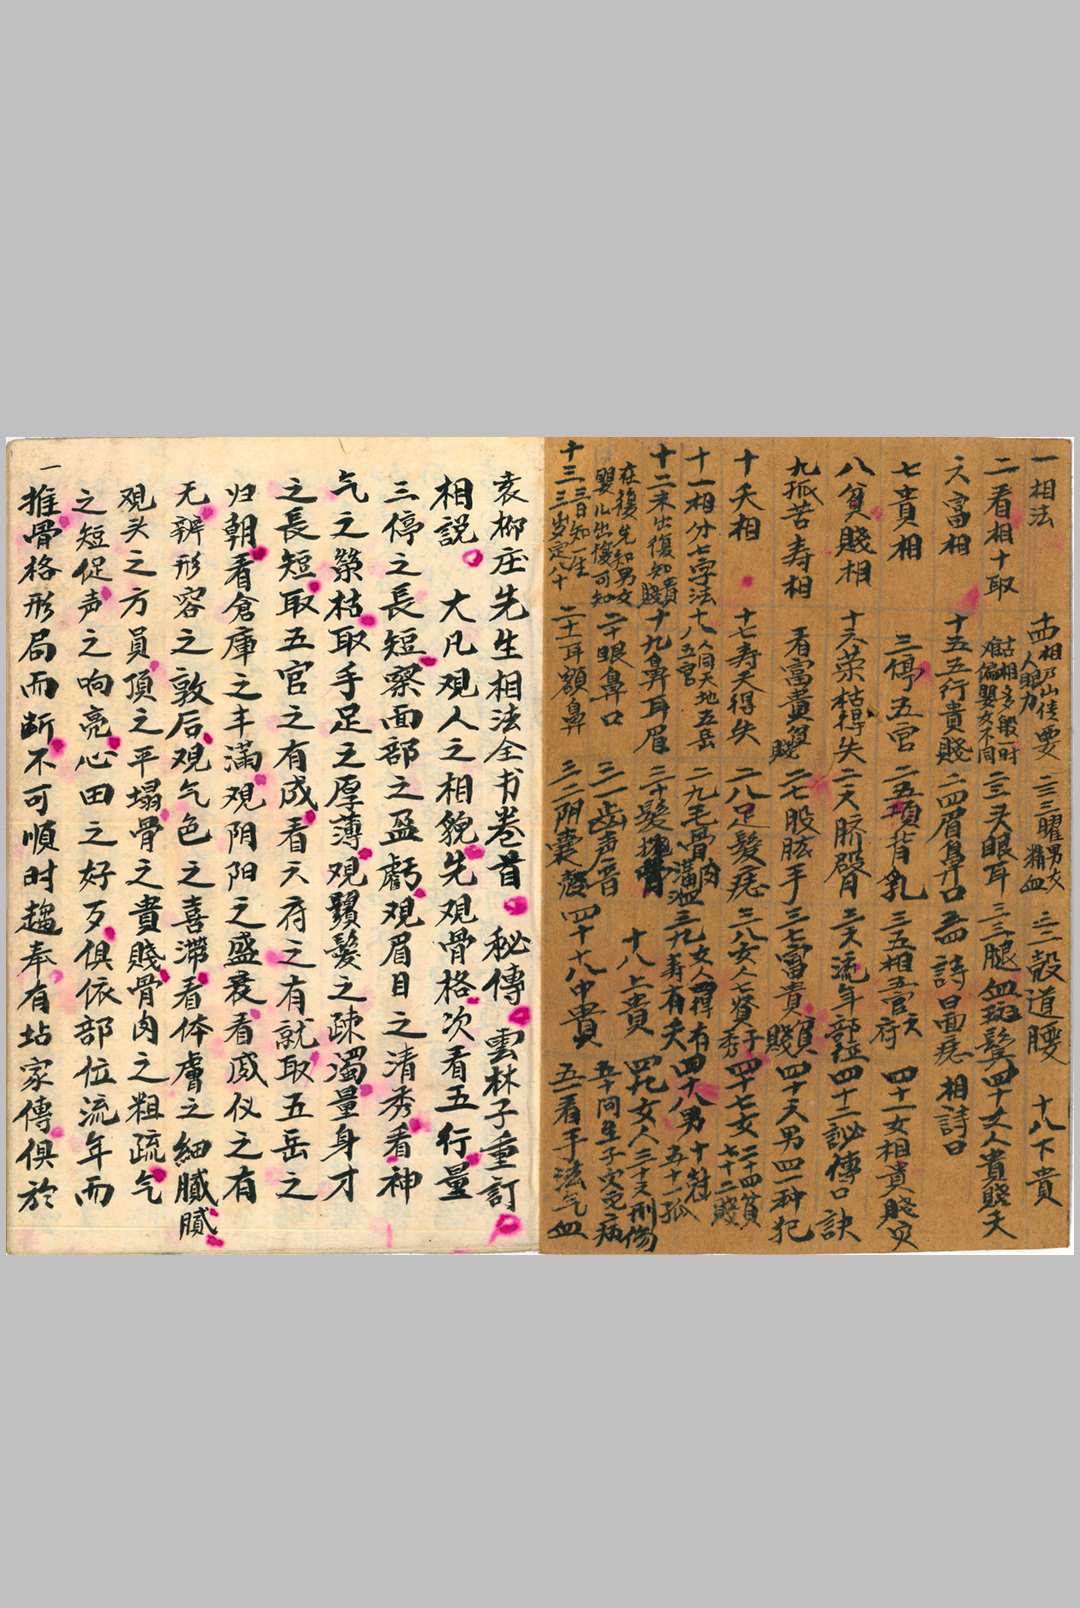 一相法
二看相十取
六富相
七貴相
八貧賤相
九孤苦寿相
十夭相
十一相分七字法
十二未出後知貴賤
在後先知男女
嬰儿出後可知
三日知一生
十三三岁定八十
十四相
人眼力
难偏嬰女不同
十五五行貴賤
三停五官
十六荣枯得失
看富貴貧賤
十七寿夭得失
十八人同天地五岳
八五官
十九鼻耳眉
二十眼鼻口
二十一耳額鼻
二三三曜男女
精血
二三头眼耳
二四眉鼻口
二五項背乳
二六臍臀
二七股肱手
二八足髮痣
二九毛骨肉
三一齿声音
三二阴囊
三二殼道腰
三三腿血斑鬓
詩曰面痣
三五相五官
三六流年部位
三七富貴貧賤
三八女人七賢
三九
女人
有寿有夭
十八上貴
四十八中貴
十八下貴
四十女人貴賤夭
相詩曰
四十一女相貴賤
四十二訣傳口訣
四十六男四一种犯
四十七女二十四貧
七十二賤
四十八男
五十一孤
四九女人三十六刑傷
五一看手法气血
袁柳庄先生相法全书卷首　秘傳　雲林子重訂
相説　大凡观人之相貌先观骨格次看五行量
三停之長短察面部之盈虧观眉目之清秀看神
气之榮枯取手足之厚薄观鬚髮之疎濁量身才
之長短取五官之有成看六府之有就取五岳之
归朝看倉庫之丰滿观阴阳之盛衰看威仪之有
无辨形容之敦后观气色之喜滯看体膚之細膩膩
观头之方員頂之平塌骨之貴賤骨肉之粗疏气
之短促声之响亮心田之好歹俱依部位流年而
一
推骨格形局而断不可順时趨奉有玷家傳俱於